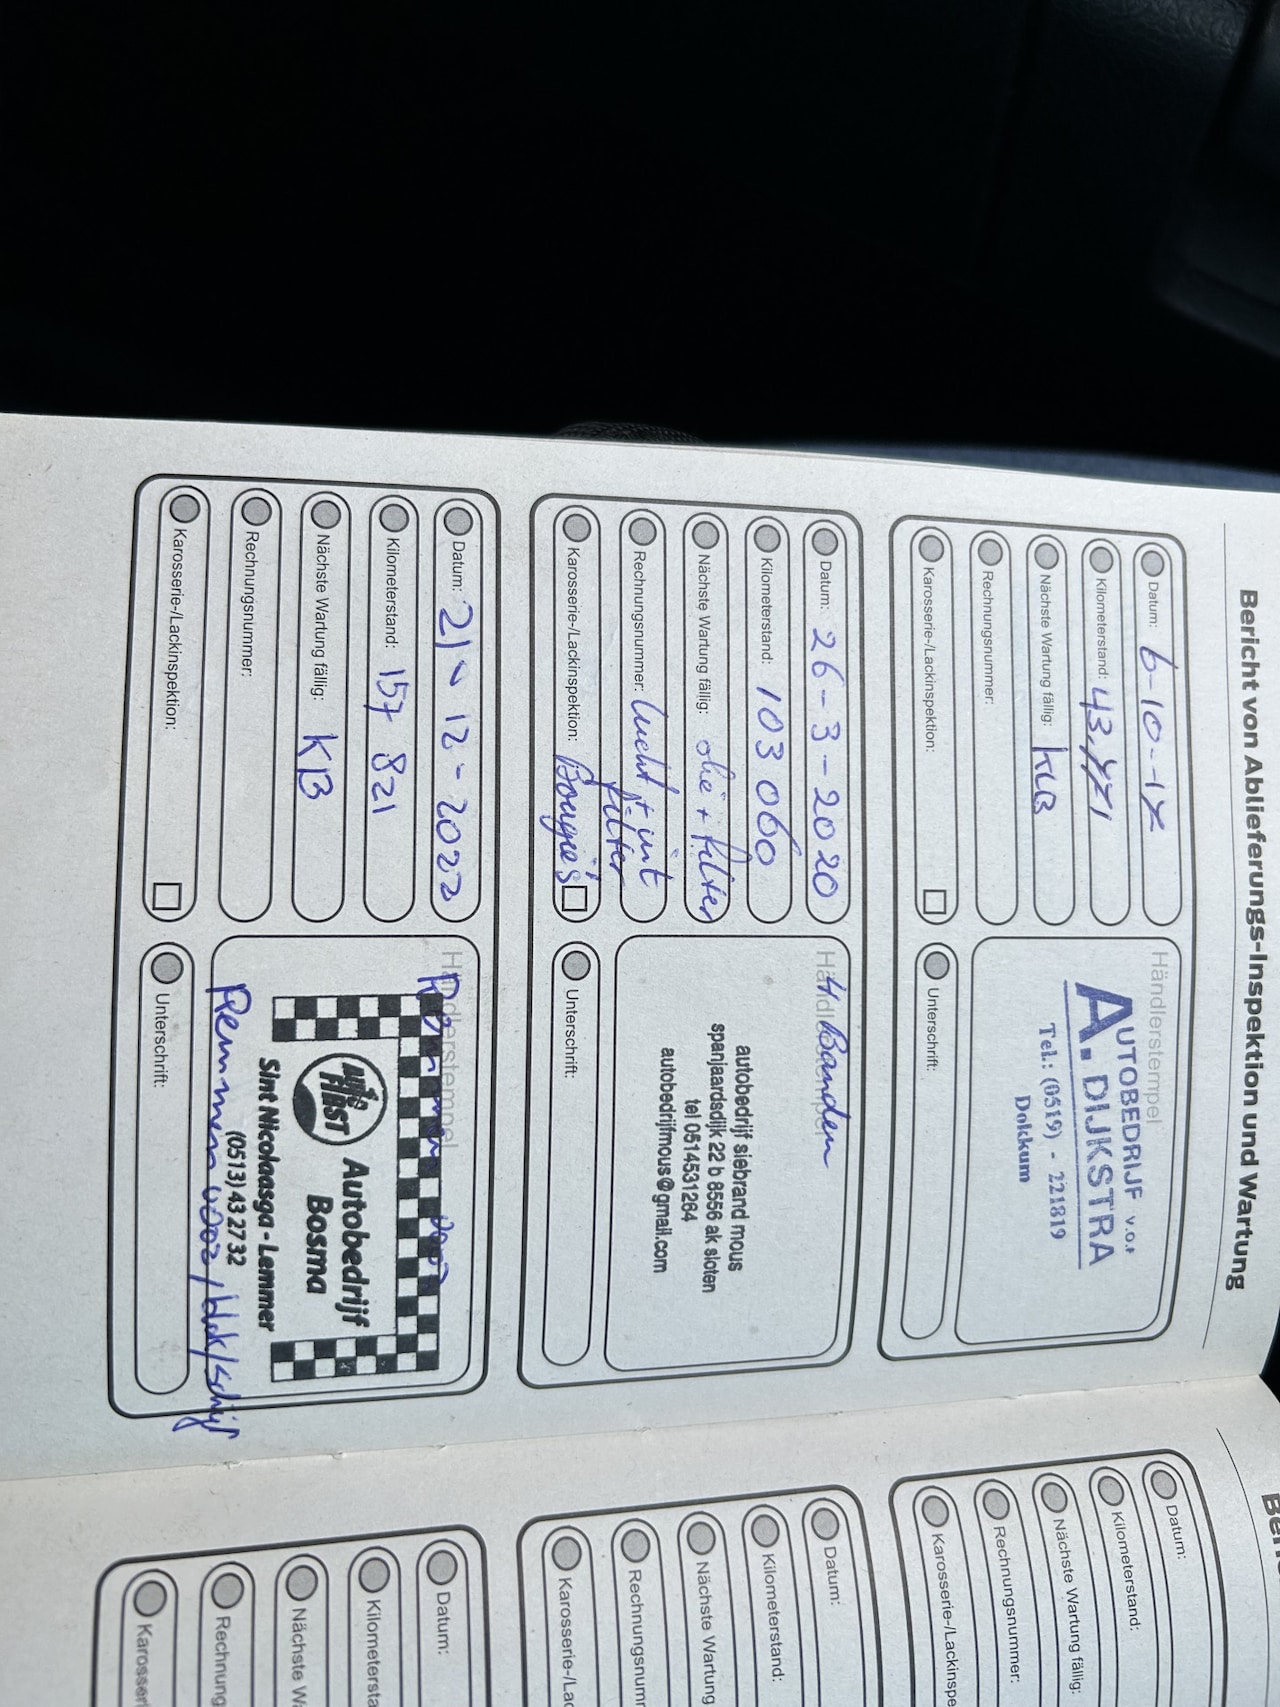 Bericht von Ablieferungs-Inspektion und Wartung
Datum: 6-10-17
Kilometerstand: 43.
Nächste Wartung fällig: KLB
Rechnungsnummer:
Karosserie-/Lackinspektion:
Händlerstempel
AUTOBEDRIJF v.o.f
A. DIJKSTRA
Tel.: (0519) - 221819
Dokkum
Unterschrift:
Datum: 26-3-2020
Kilometerstand: 103 060
Nächste Wartung fällig: olie + filter
Rechnungsnummer: lucht + int
filter
Karosserie-/Lackinspektion: Bougie's
4 Banden
autobedrijf siebrand mous
spanjaardsdijk 22 b 8556 ak sloten
tel 0514531264
autobedrijfmous@gmail.com
Unterschrift:
Datum: 21-12-2022
Kilometerstand: 157 821
Nächste Wartung fällig: KB
Rechnungsnummer:
Karosserie-/Lackinspektion:
Händlerstempel
Remmen voor
AUTO FIRST
Autobedrijf
Bosma
Sint Nicolaasga - Lemmer
(0513) 43 27 32
Remmen voor / blok / schijf
Unterschrift:
Datum:
Kilometerstand:
Nächste Wartung fällig:
Rechnungsnummer:
Karosserie-/Lackinspe
Datum:
Kilometerstand:
Nächste Wartung
Rechnungsnum
Karosserie-/Lac
Datum:
Kilometersta
Nächste Wa
Rechnung
Karosseri